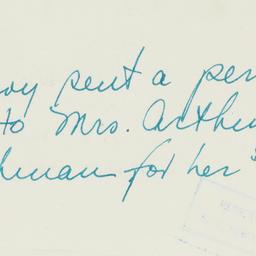 sent a per
to Mrs. Arthu
hman for her "